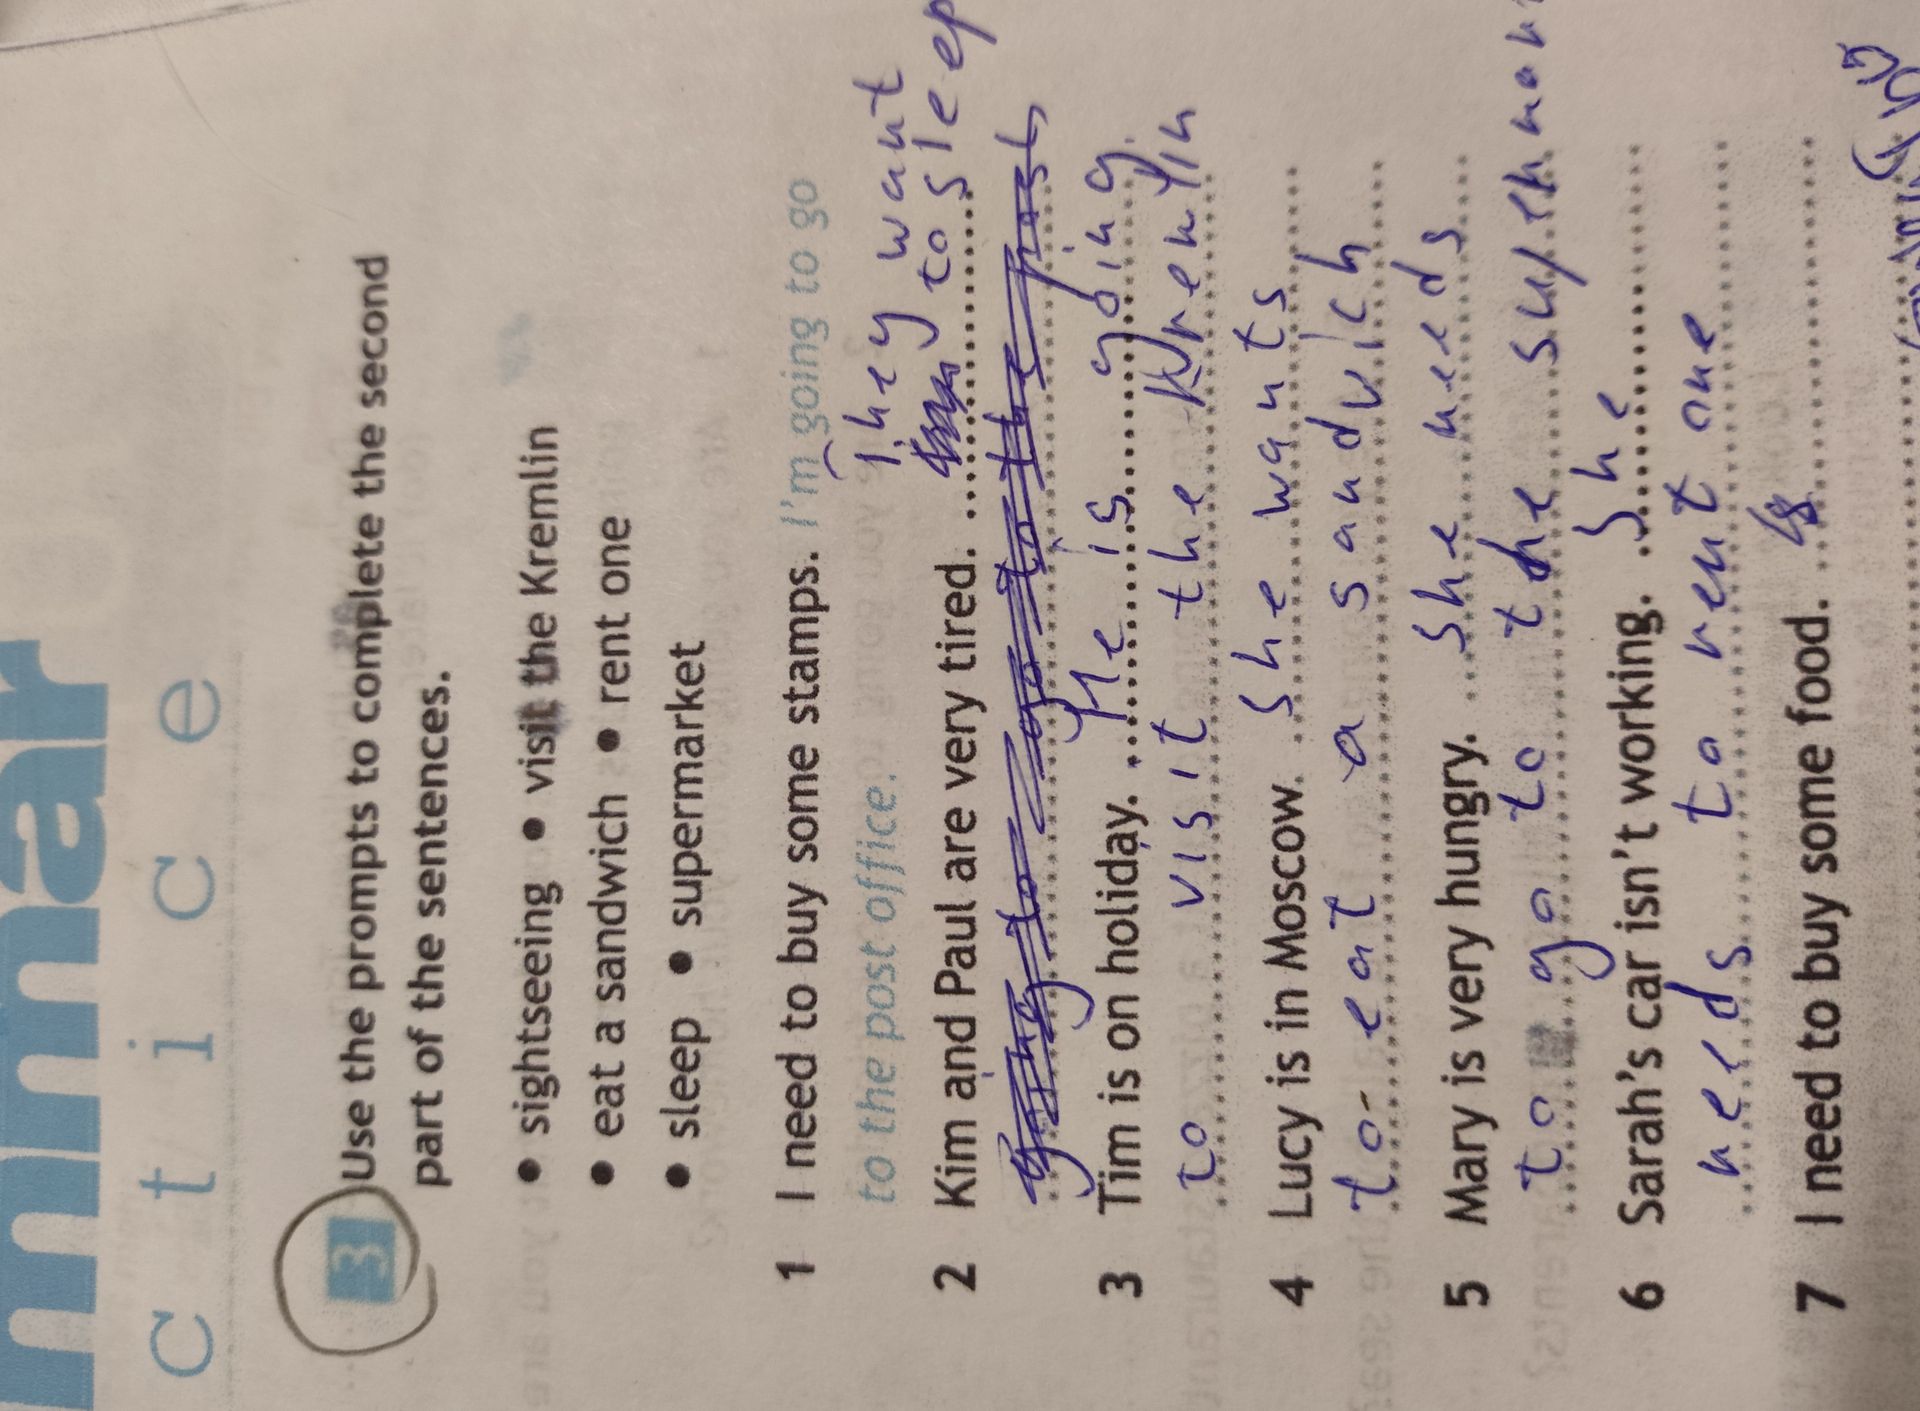 mmar
ctice
3 Use the prompts to complete the second
part of the sentences.
• sightseeing • visit the Kremlin
• eat a sandwich • rent one
• sleep • supermarket
1 I need to buy some stamps. I'm going to go
to the post office.
They want
2 Kim and Paul are very tired. to sleep
going to go to the post
3 Tim is on holiday. He is going
to visit the Kremlin
4 Lucy is in Moscow. she wants
to eat a sandwich
5 Mary is very hungry. she needs
to go to the
6 Sarah's car isn't working. She
needs to rent one
7 I need to buy some food.